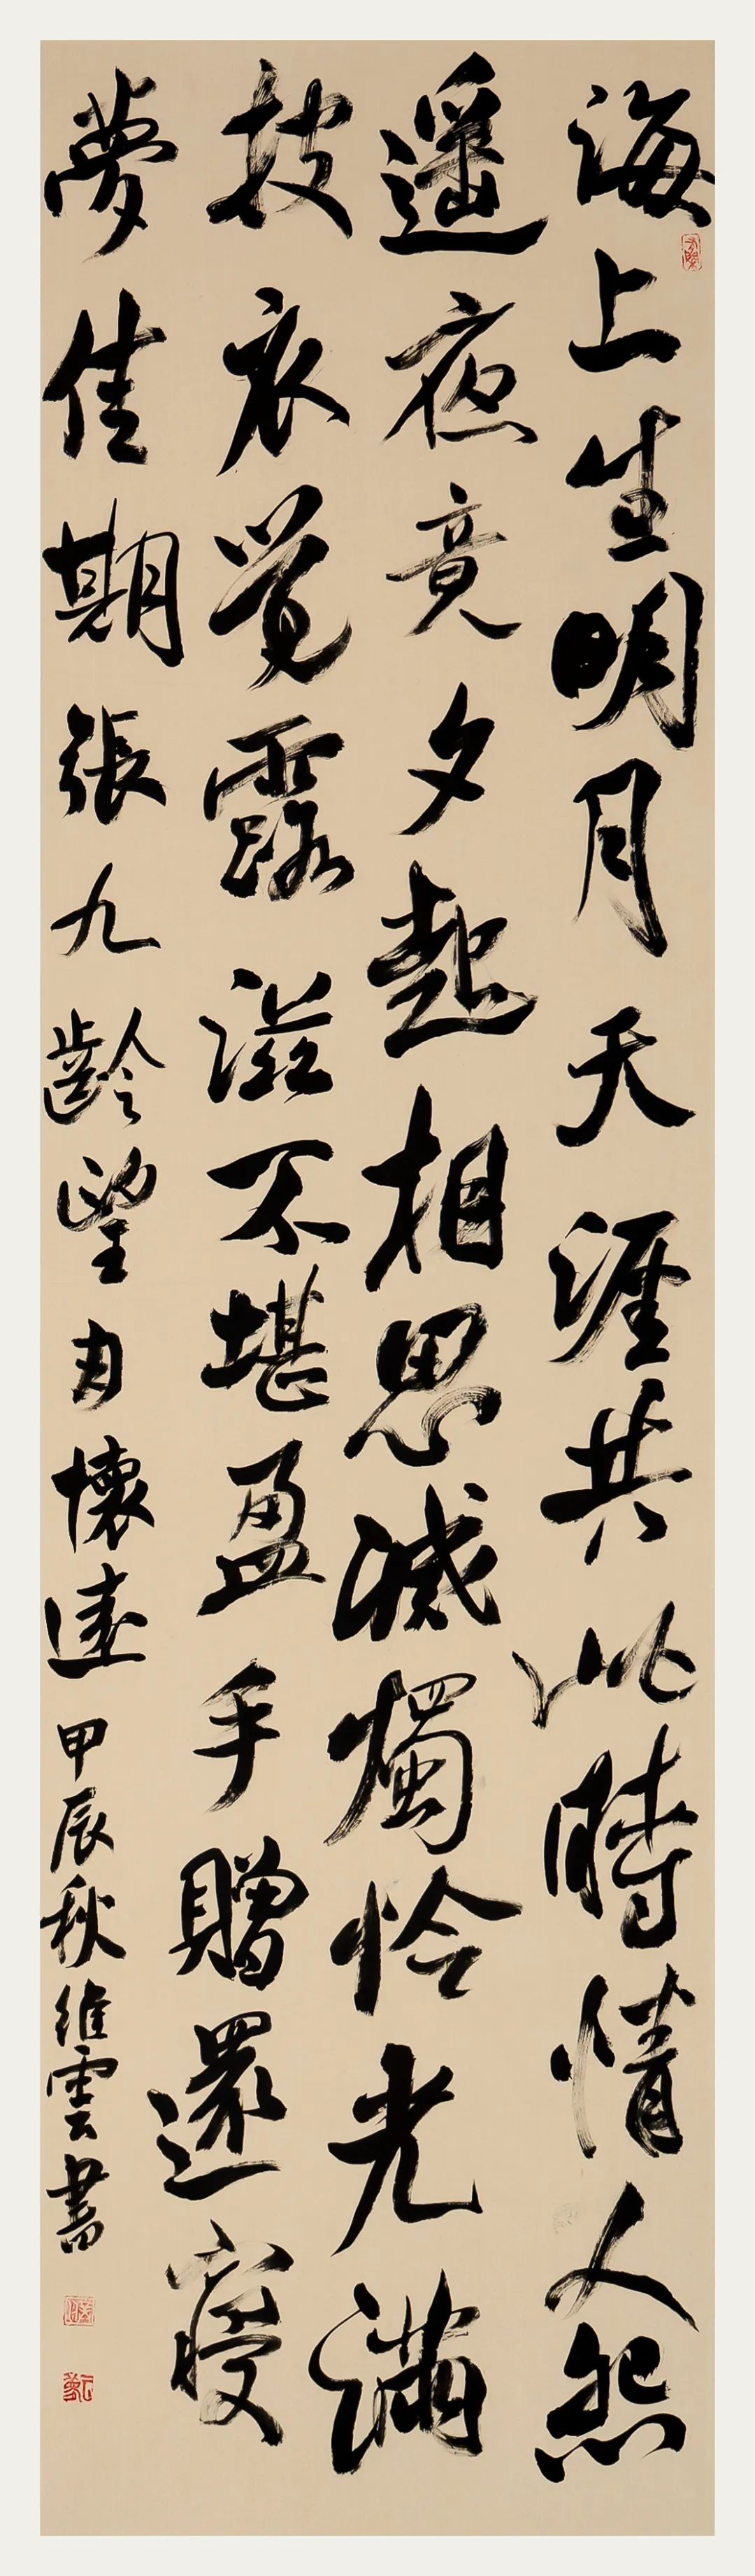 海上生明月天涯共此時情人怨
遥夜竟夕起相思滅燭怜光滿
披衣覺露滋不堪盈手贈還寢
夢佳期張九齡望月懷遠甲辰秋維雲書